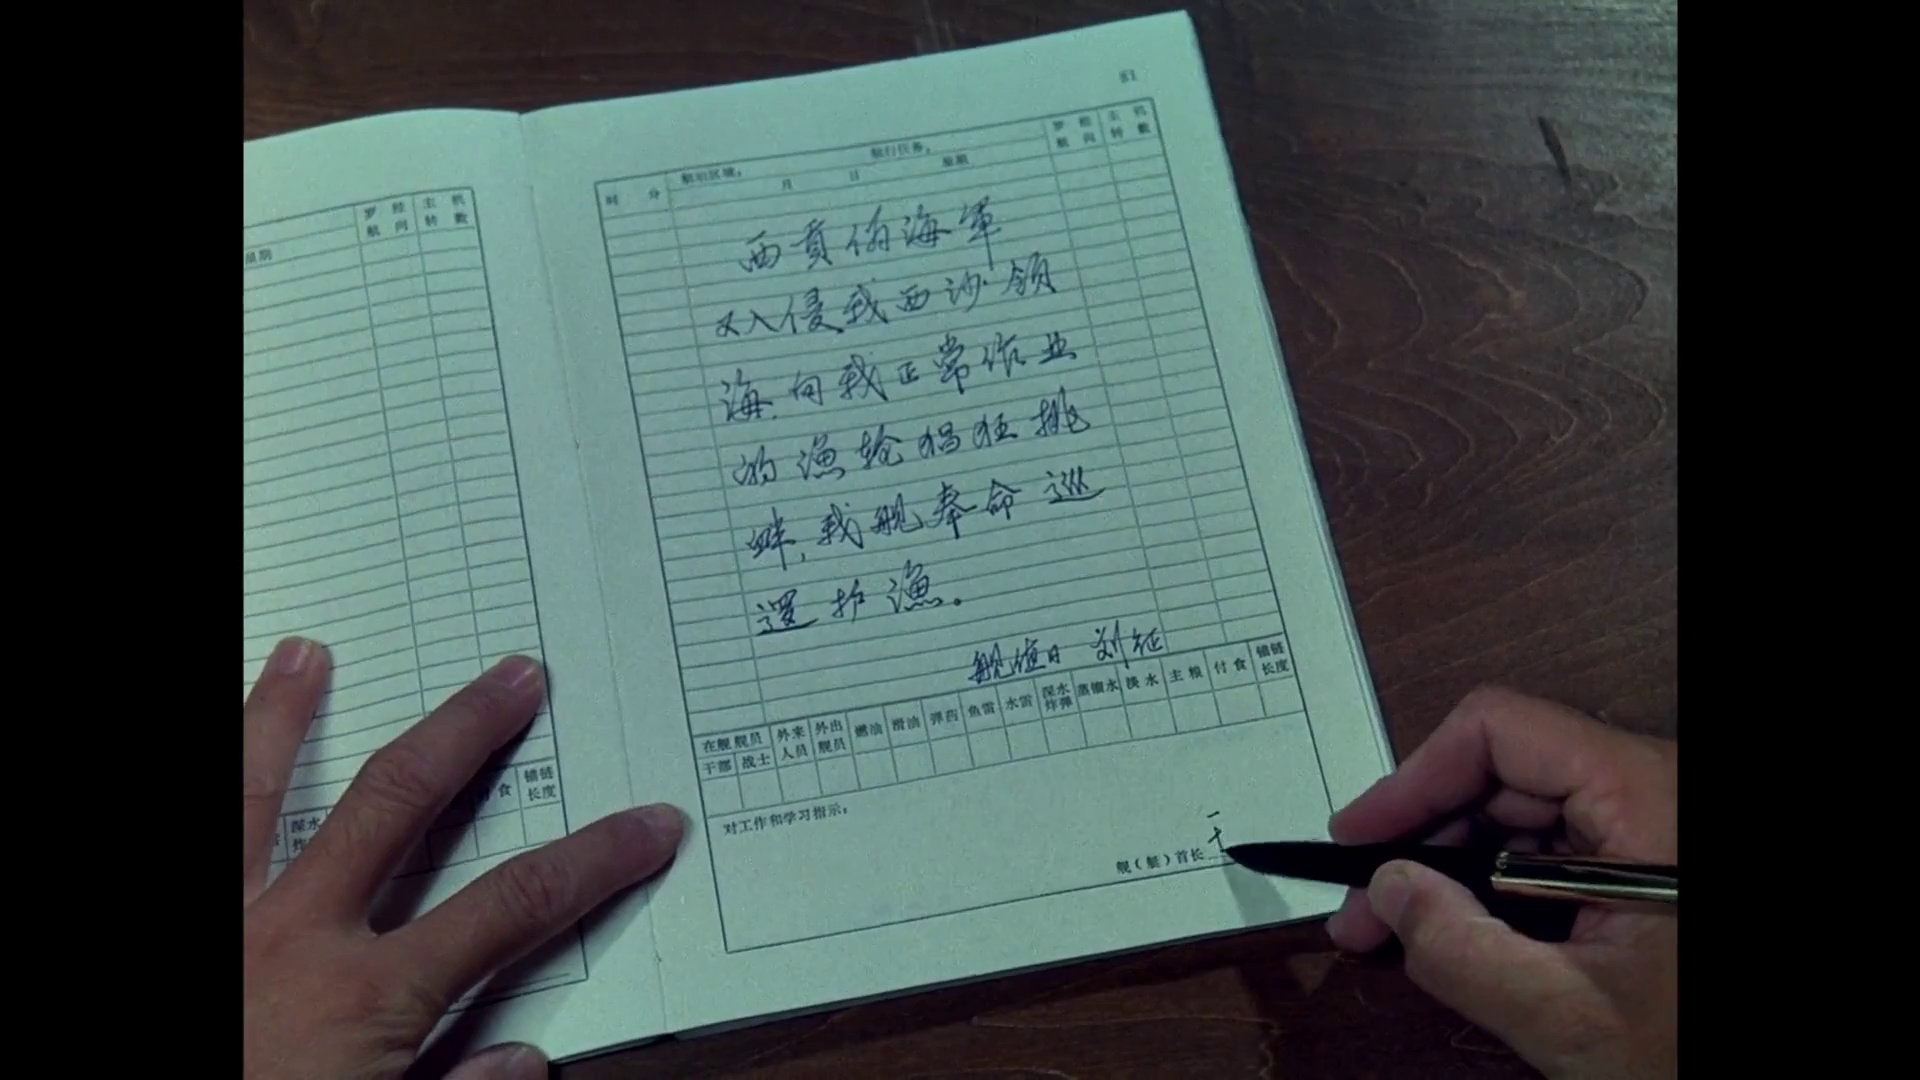 罗经 主机
航向 转数
星期
食 锚链
长度
深水
51
航泊区域： 航行任务： 罗经 主机
时 分 月 日 星期 航向 转数
西贡伪海军
又入侵我西沙领
海.向我正常作业
的渔轮猖狂挑
衅,我舰奉命巡
逻护渔。
舰值日 刘征
在舰舰员 外来 外出 燃油 滑油 弹药 鱼雷 水雷 深水 蒸馏水 淡水 主粮 付食 锚链
干部 战士 人员 舰员 炸弹 长度
对工作和学习指示：
舰（艇）首长